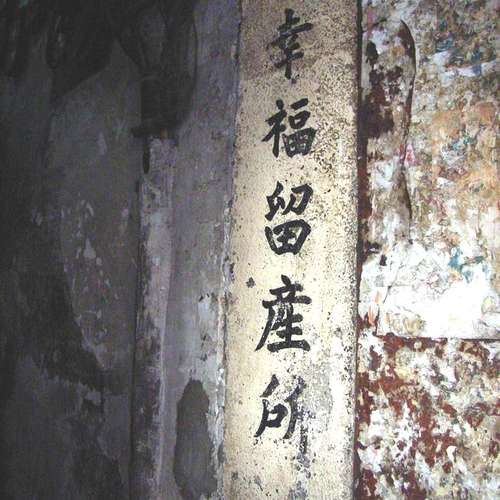 幸福留産所